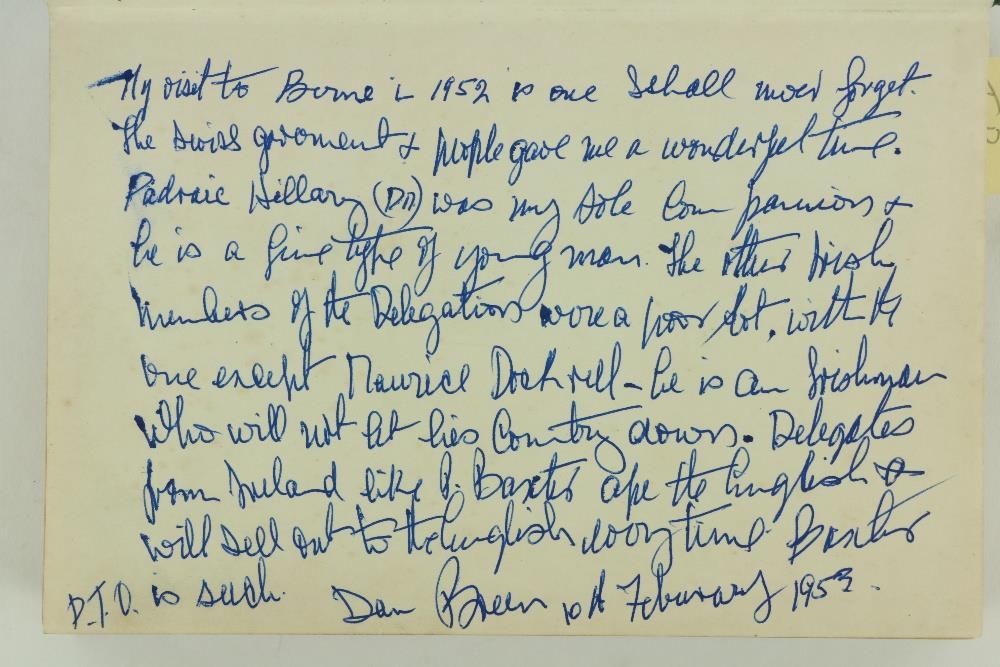 My visit to Borne in 1952 is one Schall never forget.
The swiss goverment & people gave me a wonderful time.
Padraic Hillary (Dr) was my sole Companion &
he is a fine type of young man. The other Irish
members of the Delegation were a poor lot, with the
one except Maurice Dockrell – he is an Irishman
who will not let his Country down. Delegates
from Ireland like P. Baxter ape the English &
will sell out to the English every time. Baxter
P.T.O. is such. Dan Breen 10th February 1953.